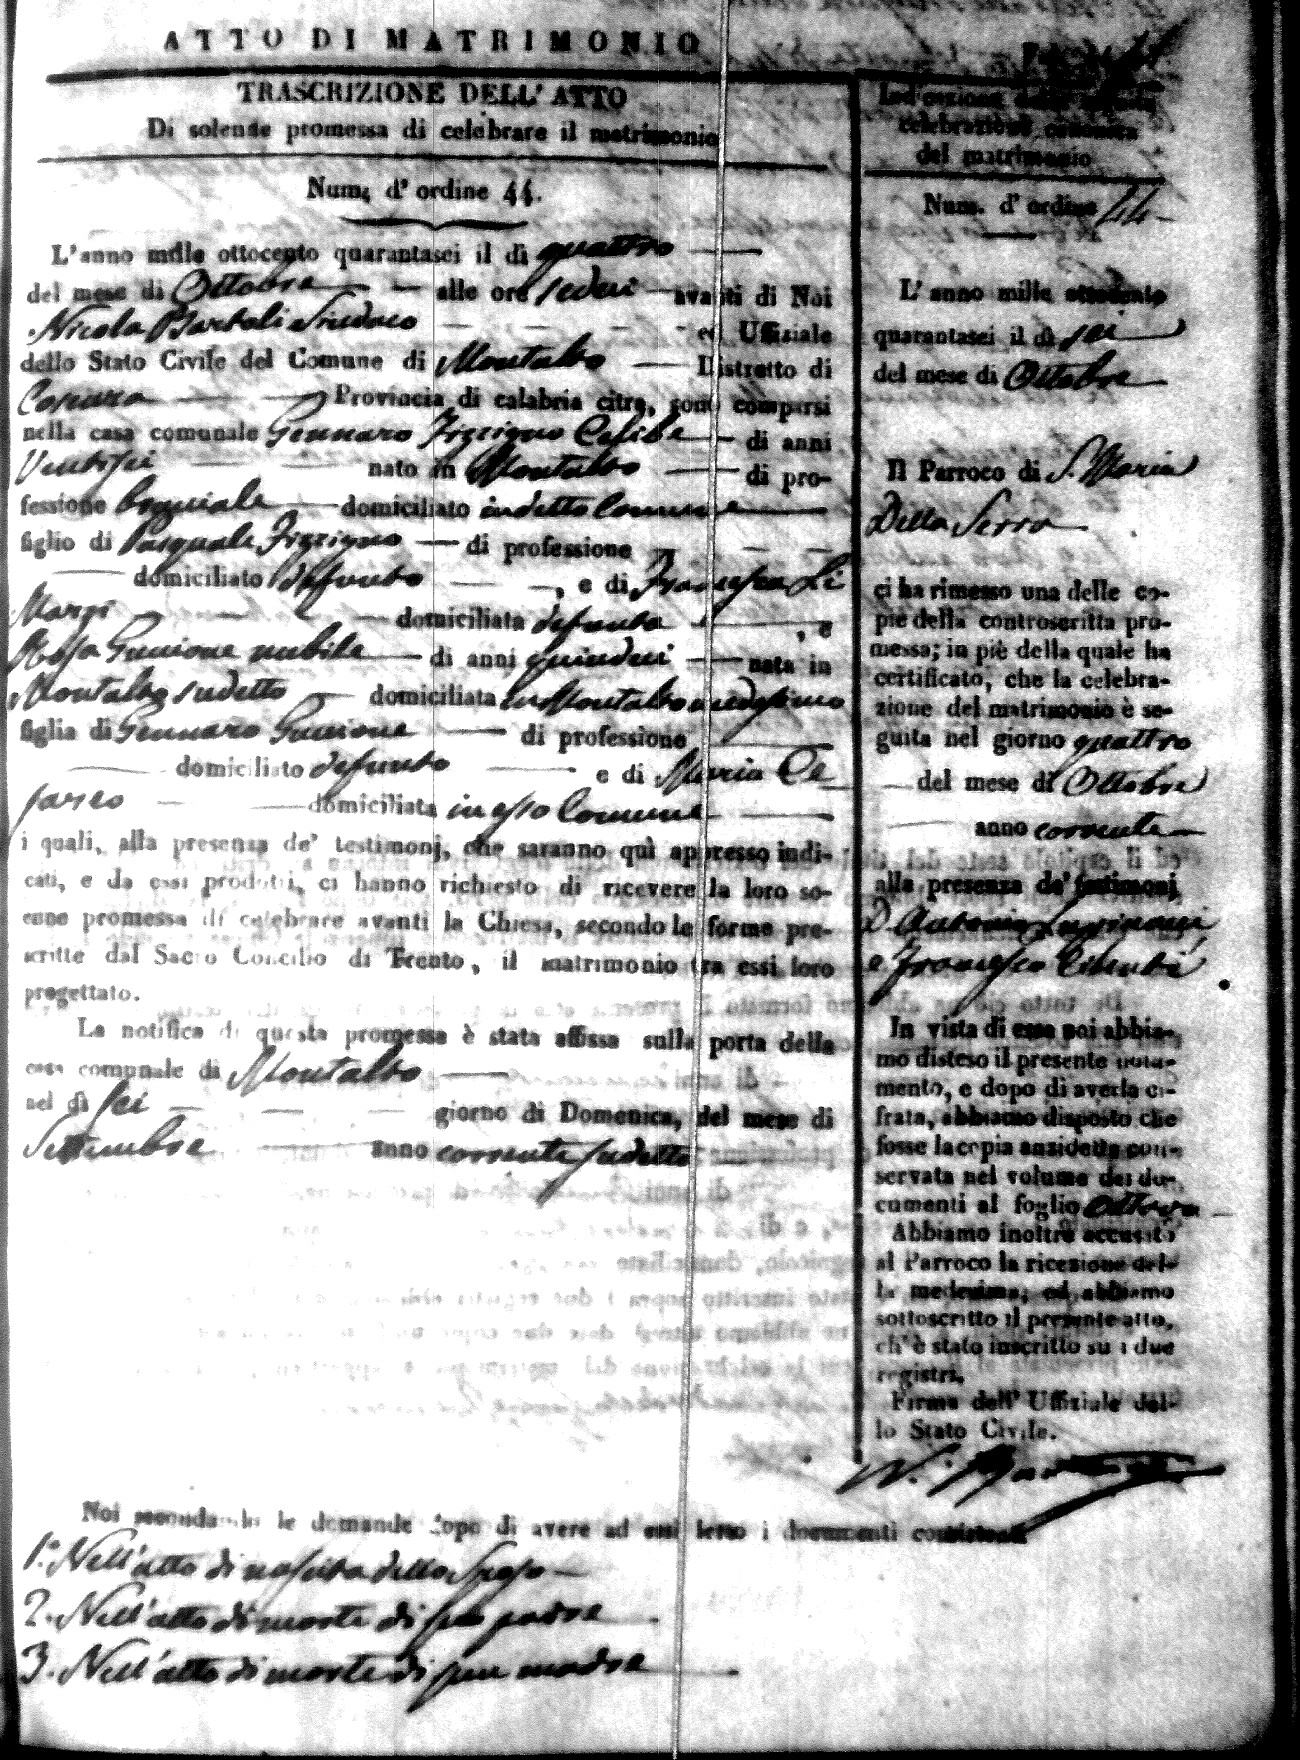 ATTO DI MATRIMONIO
TRASCRIZIONE DELL'ATTO
Di solenne promessa di celebrare il matrimonio
Num. d'ordine 44.
L'anno mille ottocento quarantasei il dì quattro
del mese di Ottobre alle ore sedeci avanti di Noi
Nicola Bartoli Sindaco ed Uffiziale
dello Stato Civile del Comune di Montalto Distretto di
Cosenza Provincia di calabria citra, sono comparsi
nella casa comunale Gennaro Celibe di anni
Ventisei nato in Montalto di pro-
fessione braciale domiciliato in detto Comune
figlio di Pasquale di professione
domiciliato defunto , e di Francesca Li
Marzi domiciliata defunta , e
Rosa Guccione nubile di anni quindeci nata in
Montalto sudetto domiciliata in Montalto medesimo
figlia di Gennaro Guccione di professione
domiciliato defunto e di Maria Ce
sareo domiciliata in esso Comune
i quali, alla presenza de' testimonj, che saranno quì appresso indi-
cati, e da essi prodotti, ci hanno richiesto di ricevere la loro so-
enne promessa di celebrare avanti la Chiesa, secondo le forme pre-
scritte dal Sacro Concilio di Trento, il matrimonio tra essi loro
progettato.
La notifica di questa promessa è stata affissa sulla porta della
casa comunale di Montalto
nel dì sei giorno di Domenica, del mese di
Settembre anno corrente sudetto
Noi secondando le demande dopo di avere ad essi letto i documenti consistenti
1.° Nell'atto di nascita dello Sposo
2. Nell'atto di morte di suo padre
3. Nell'atto di morte di sua madre
celebrazione canonica
del matrimonio
Num. d'ordine 44
L'anno mille ottocento
quarantasei il dì sei
del mese di Ottobre
Il Parroco di S. Maria
Della Serra
ci ha rimesso una delle co-
pie della controscritta pro-
messa; in piè della quale ha
certificato, che la celebra-
zione del matrimonio è se-
guita nel giorno quattro
del mese di Ottobre
anno corrente
alla presenza de' testimonj
D. Antonio
e Francesco
In vista di essa noi abbia-
mo disteso il presente nota-
mento, e dopo di averla ci-
frata, abbiamo disposto che
fosse la copia anzidetta con-
servata nel volume dei do-
cumenti al foglio ottavo
Abbiamo inoltre accusato
al Parroco la ricezione del-
la medesima; ed abbiamo
sottoscritto il presente atto,
ch'è stato inscritto su i due
registri.
Firma dell' Uffiziale del-
lo Stato Civile.
N.